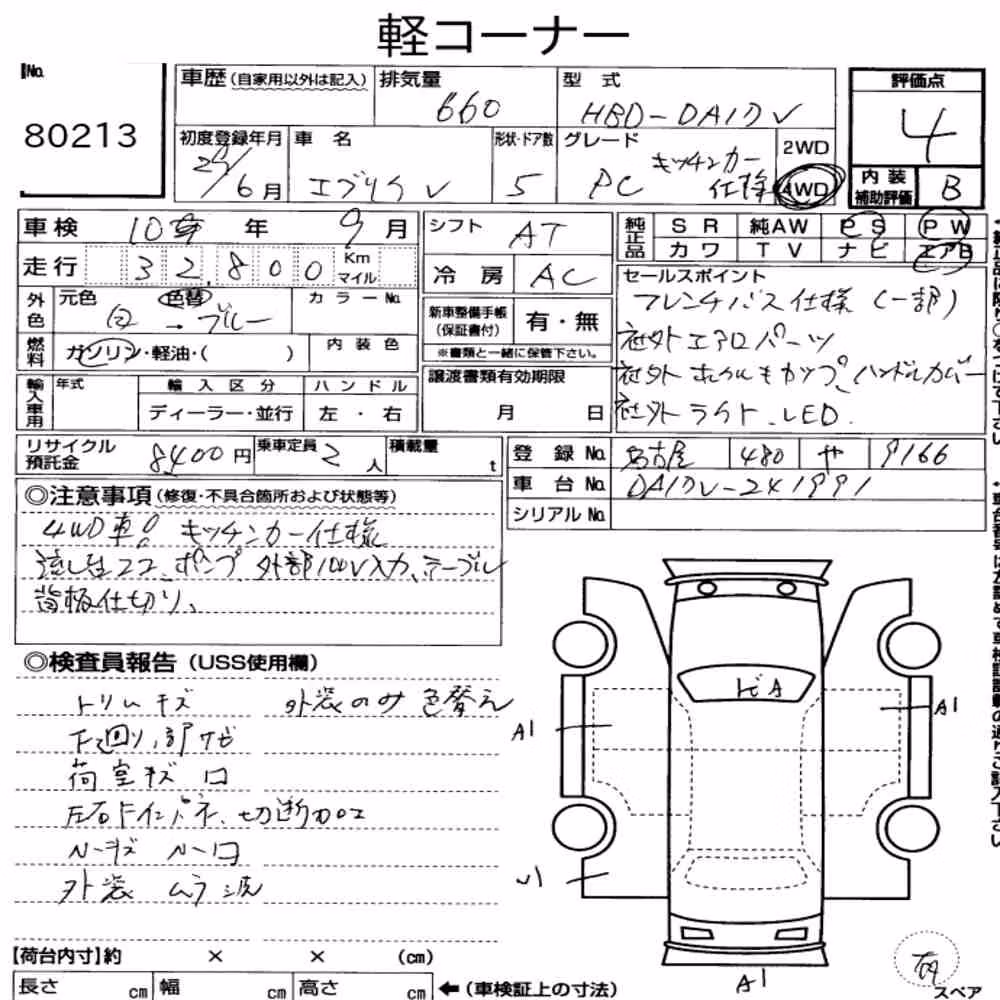 軽コーナー
No. 80213
車歴 (自家用以外は記入) 排気量 660 型式 HBD-DA17V
評価点 4
初度登録年月 6月 車名 エブリイV 形状・ドア数 5 グレード PC キッチンカー仕様 2WD 4WD
内装補助評価 B
車検 10年 9月 シフト AT 純正品 SR 純AW PS PW
カワ TV ナビ エアB
走行 32,800 Km マイル 冷房 AC
外色 元色 色替 白→ブルー カラーNo.
燃料 ガソリン・軽油・( ) 内装色
新車整備手帳(保証書付) 有・無
※書類と一緒に保管下さい。
セールスポイント
フレンチバス仕様(一部)
社外エアロパーツ
社外ホイルキャップ、ハンドルカバー
社外ライト、LED.
輸入車用 年式 輸入区分 ハンドル
ディーラー・並行 左・右
譲渡書類有効期限
月 日
リサイクル預託金 8400円 乗車定員 2人 積載量 t
登録No. 名古屋 480 や 9166
車台No. DA17V-241991
シリアルNo.
◎注意事項(修復・不具合箇所および状態等)
4WD車! キッチンカー仕様
流し台2コ、ポンプ 外部100V入力、テーブル
背板仕切り、
◎検査員報告(USS使用欄)
トリムキズ 外装のみ色替え
下廻り、部サビ
荷室キズ 凹
左右ドインパネ、切断加工
Nーキズ Nー凹
外装 ムラ 波
トビA
A1
A1
A1
【荷台内寸】約 × × (cm)
長さ cm 幅 cm 高さ cm ←(車検証上の寸法)
有 スペア